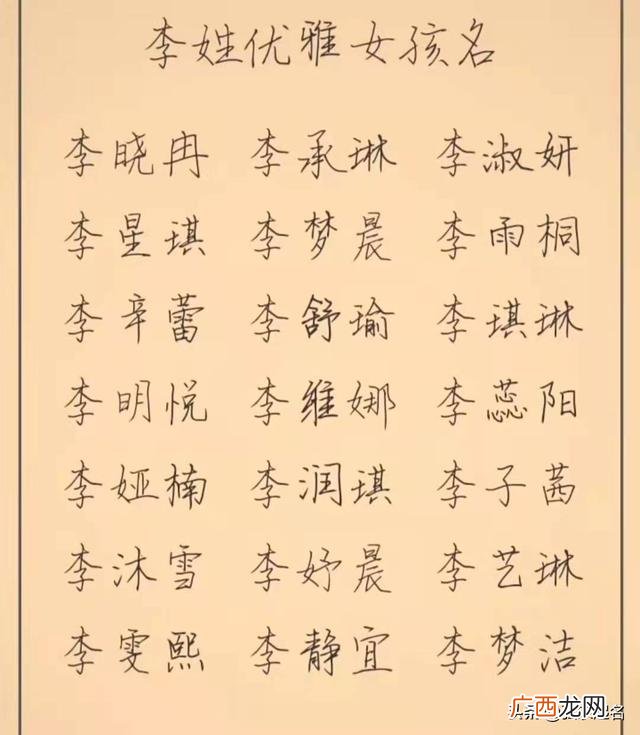 李姓优雅女孩名
李晓冉 李承琳 李淑妍
李星琪 李梦晨 李雨桐
李辛蕾 李舒瑜 李琪琳
李明悦 李维娜 李蕊阳
李娅楠 李润琪 李子茜
李沐雪 李妤晨 李艺琳
李雯熙 李静宜 李梦洁
广西龙网